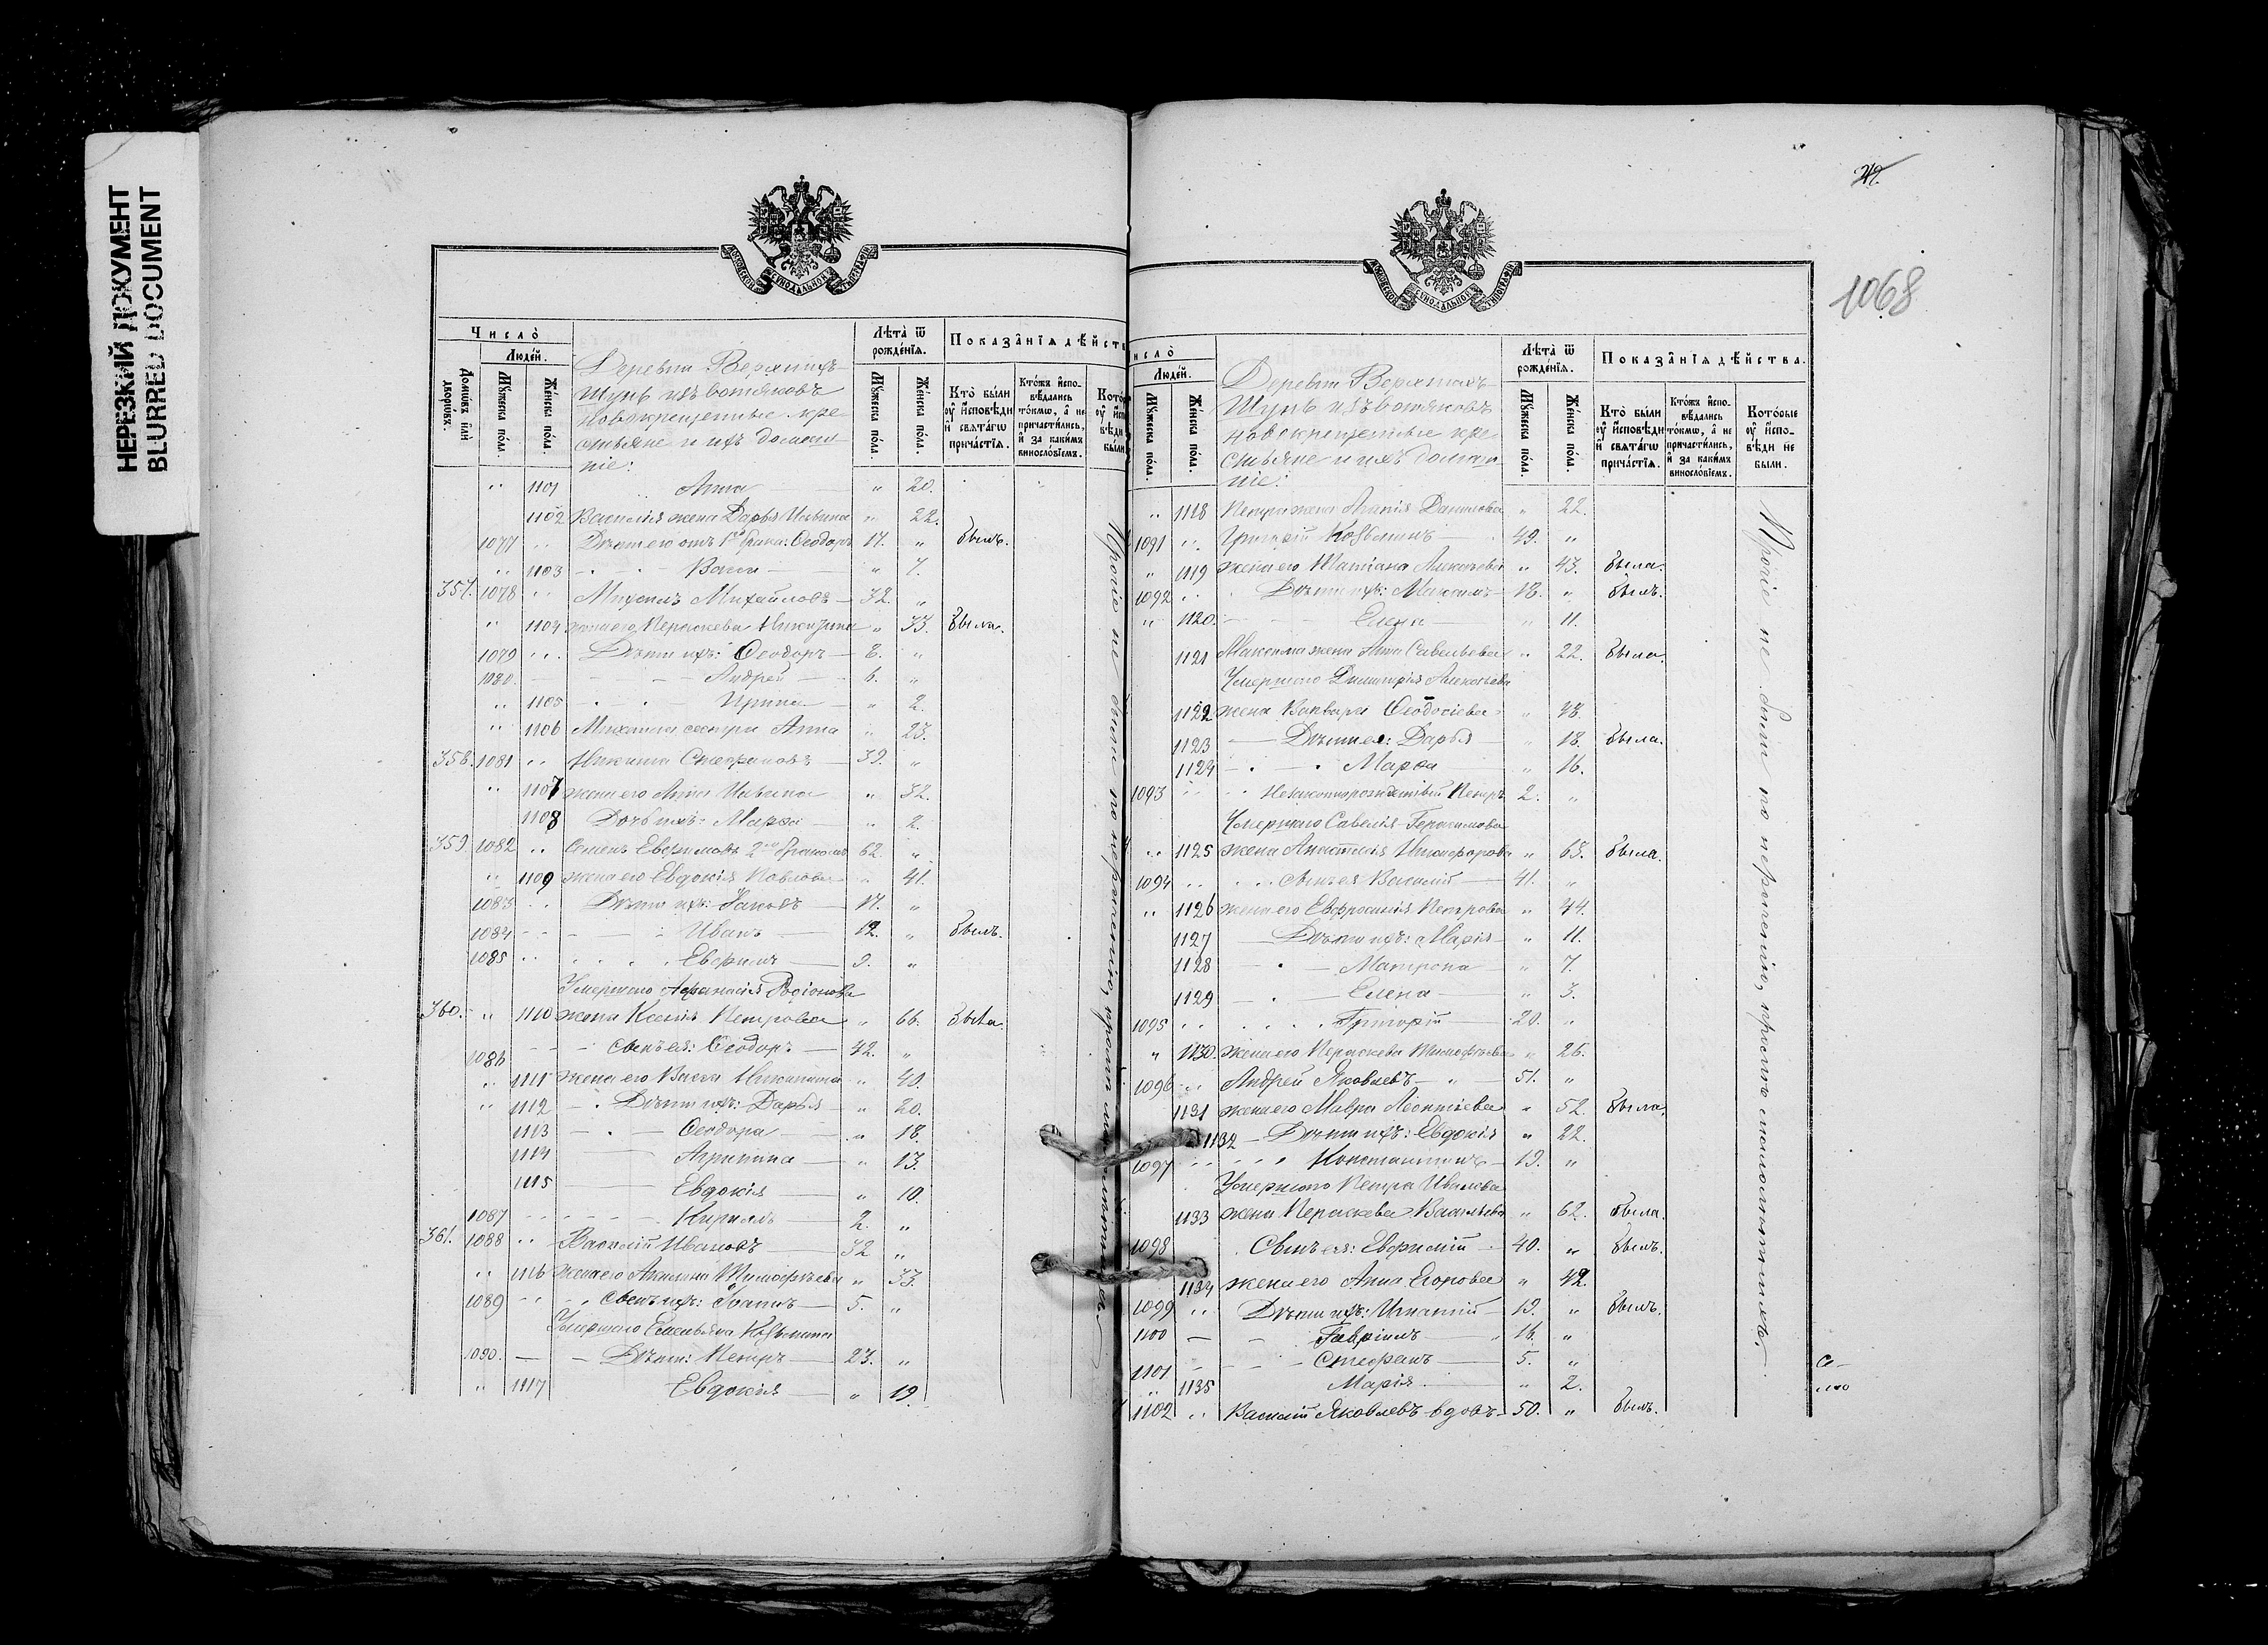 НЕРЕЗКИЙ ДОКУМЕНТ
BLURRED DOCUMENT
МОСКОВСКОЙ СУНОДАЛЬНОЙ ТИПОГРАФІИ
Число̀
Людей.
Домѡвъ или дворѡвъ.
Мꙋжеска пола.
Женска пола.
Деревни Верхнихъ-
Шунь изъ вотяковъ
новокрещенные кре-
стьяне и ихъ домаш-
ніе:
Лѣта̀ ѿ рожденїѧ.
Мꙋжеска пола.
Женска пола.
Показанїѧ дѣйств
Кто̀ были ᲂу҆ исповѣди и свѧтагѡ причастїѧ.
Ктожъ испо-вѣдались токмѡ, а не причастились, и за какимъ винословїемъ.
1101 Анна 20.
1102 Василія жена Дарья Ильина 22.
1077 Дѣти его отъ 1го брака: Ѳеодоръ 17. былъ.
1103 Васса 7.
357. 1078 Михаилъ Михайловъ 32.
1104 жена его Параскева Никитина 33. была.
1079 Дѣти ихъ: Ѳеодоръ 8.
1080. Андрей 6.
1105 Ирина 2.
1106 Михаила сестра Анна 23.
358. 1081 Никита Стефановъ 39.
1107 жена его Анна Ильина 32.
1108 Дочь ихъ: Марѳа 2.
359. 1082 Семенъ Евфимовъ 2мъ бракомъ 62.
1109 жена его Евдокія Павлова 41.
1083 Дѣти ихъ: Іаковъ 17.
1084 Иванъ 12. былъ.
1085 Евфимъ 9.
Умершаго Аѳанасія Родіонова
360. 1110 жена Ксенія Петрова 66. была.
1086 сынъ ея: Ѳеодоръ 42.
1111 жена его Васса Никитина 40.
1112 Дѣти ихъ: Дарья 20.
1113 Ѳеодора 18.
1114 Агрипина 13.
1115 Евдокія 10.
1087 Кириллъ 2.
361. 1088 Василій Ивановъ 32
1116 жена его Акилина Тимоѳѣева 33.
1089 сынъ ихъ: Іоаннъ 5.
Умершаго Емельяна Козьмина
1090. Дѣти: Петръ 23.
1117 Евдокія 19.
Прочіе не были по нерачению, кромѣ малолѣтнихъ
42.
1068
Людей.
Мꙋжеска пола.
Женска пола.
Деревни Верхнихъ-
Шунь изъ вотяковъ
новокрещенные кре-
стьяне и ихъ домаш-
ніе:
Лѣта̀ ѿ рожденїѧ.
Мꙋжеска пола.
Женска пола.
Показанїѧ дѣйства.
Кто̀ были ᲂу҆ исповѣди и свѧтагѡ причастїѧ.
Ктожъ испо-вѣдались токмѡ, а не причастились, и за какимъ винословїемъ.
Которые ᲂу҆ испо-вѣди не были.
1118 Петра жена Данилова 22.
1091 Григорій Козьминъ 49.
1119 жена его Татіана Алексѣева 43. была.
1092 Дѣти ихъ: Максимъ 18. былъ.
1120. Елена 11.
1121 Максима жена Анна Савельева 22. была.
Умершаго Димитрія Алексѣева
1122 жена Варвара Ѳеодосіева 48.
1123 Дѣти ея: Дарья 18. была.
1124 Марѳа 16.
1093 Незаконнорожденный Петръ 2.
Умершаго Савелія Герасимова
1125 жена Анастасія Никифорова 63. была.
1094 сынъ ея Василій 41.
1126 жена его Евфросинія Петрова 44.
1127 Дѣти ихъ: Марія 11.
1128 Матрона 7.
1129 Елена 3.
1095 Григорій 20.
1130. жена его Параскева Тимоѳѣева 26.
1096 Андрей Яковлевъ 51.
1131 жена его Мавра Леонтіева 52. была.
1132 Дѣти ихъ: Евдокія 22.
1097 Константинъ 19.
Умершаго Петра Иванова
1133 жена Параскева Васильева 62. была.
1098 Сынъ ея: Евфимій 40. былъ.
1134 жена его Анна Егорова 42.
1099 Дѣти ихъ: Игнатій 19. былъ.
1100 Гавріилъ 16.
1101 Стефанъ 5.
1135 Марія 2.
1102 Василій Яковлевъ вдовъ 50. былъ.
Прочіе не были по нерачению, кромѣ малолѣтнихъ